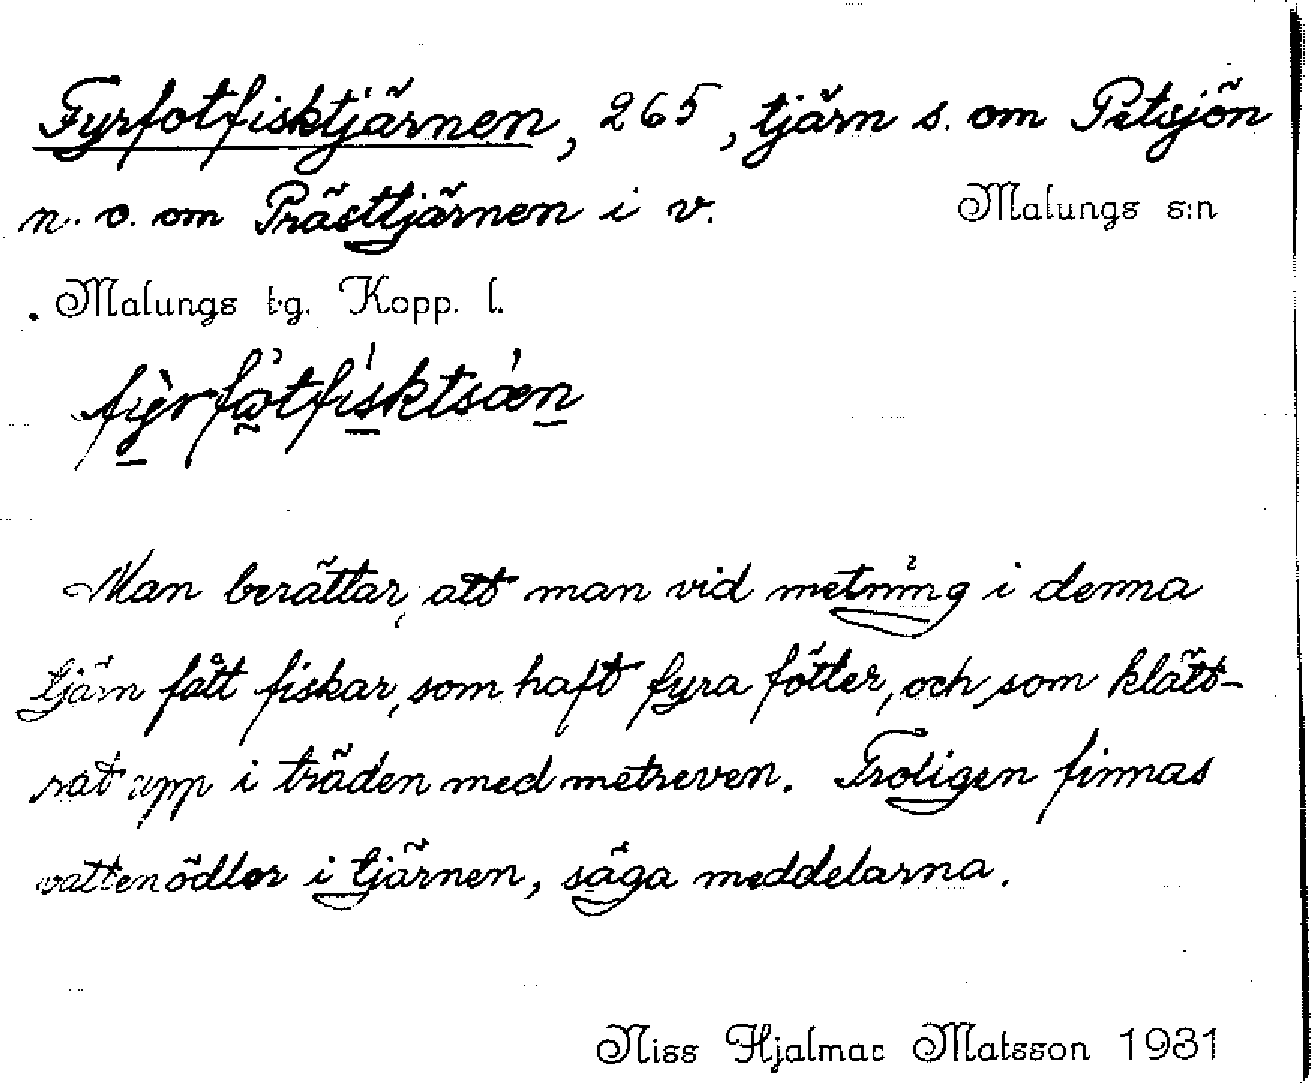 Fyrfotfisktjärnen, 265, tjärn s. om Petsjön
n. o. om Prästtjärnen i v. Malungs s:n
Malungs tg. Kopp. l.
Man berättar, att man vid metning i denna
tjärn fått fiskar, som haft fyra fötter, och som klätt-
rat upp i träden med metreven. Troligen finnas
vattenödlor i tjärnen, säga meddelarna.
Niss Hjalmar Matsson 1931